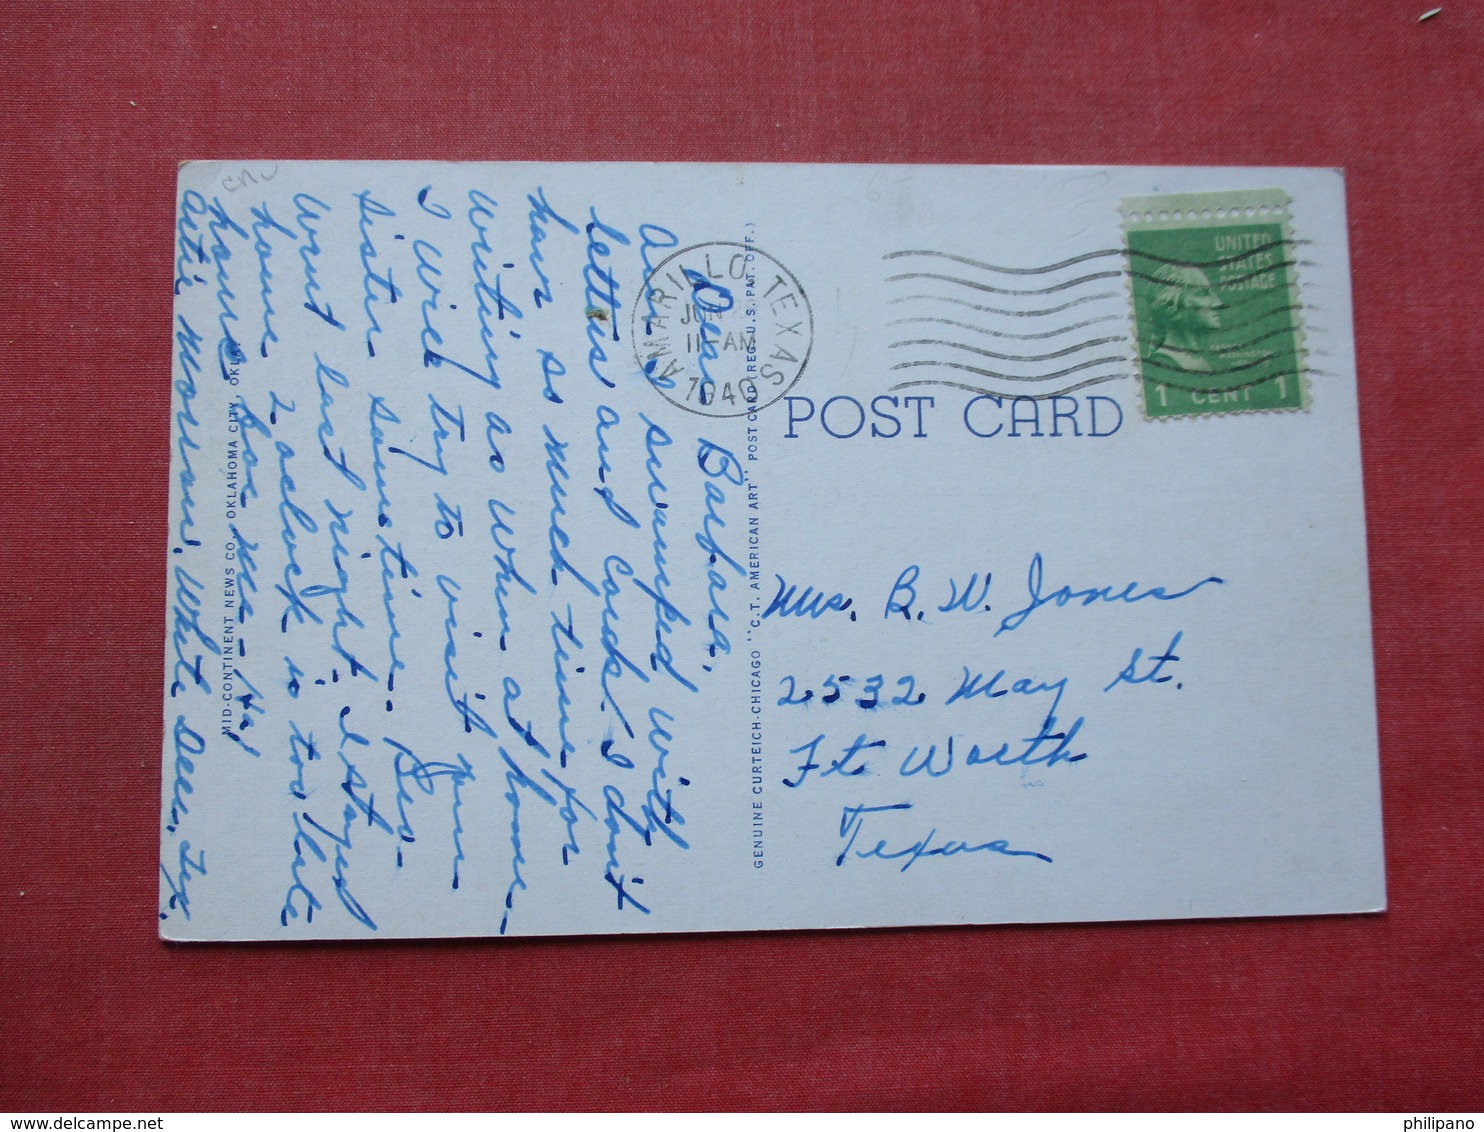 Dear Barbara,
Am swamped with
letters and cards! I don't
have so much time for
writing as when at home—
I will try to visit your
sister sometime. Bro-
went last night. I stayed
home. 2 oclock is too late
hours for me—
Artie Morrow. White Deer, Tex.
MID-CONTINENT NEWS CO., OKLAHOMA CITY, OKLA.
GENUINE CURTEICH-CHICAGO "C.T. AMERICAN ART" POST CARD (REG. U.S. PAT. OFF.)
AMARILLO, TEXAS
JUN
11-AM
1940
UNITED
STATES
POSTAGE
1 CENT 1
POST CARD
Mrs. B. W. Jones
2532 May St.
Ft. Worth
Texas
philipano
delcampe.net